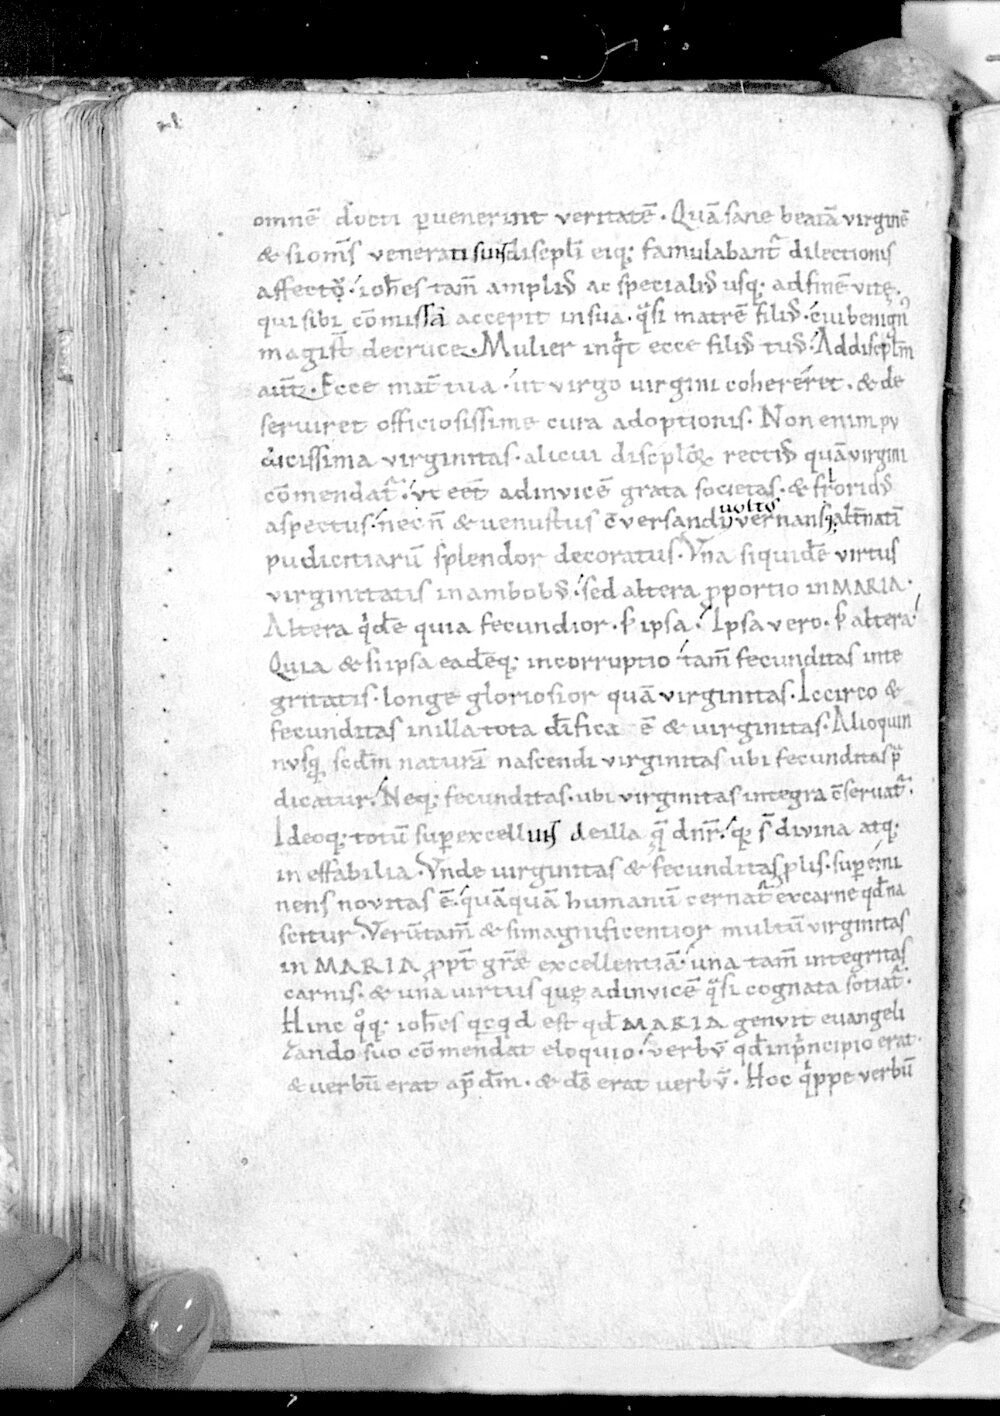 omnē docti ꝑuenerint veritatē. Quā sane beatā virginē
& si om̄s venerati sunt discipl̄i eiq; famulabant᷑ dilectionis
affectꝰ, ioh̄es tam̄ ampliꝰ ac specialiꝰ usq; ad finē vitę.
qui sibi cōmissā accepit in sua. q̄si matrē filiꝰ. cui benignꝰ
magist̄ de cruce. Mulier inq̇t ecce filiꝰ tuꝰ. Ad discipl̄m
aut̄. Ecce mat̄ tua. ut virgo uirgini cohereret. & de
seruiret officiosissime cura adoptionis. Non enim pu
dicissima virginitas. alicui discpl̄oꝝ rectiꝰ quā virgini
cōmendat᷑. ut eēt ad invicē grata societas. & floridꝰ
aspectus. nec n̄ & uenustus c̄versandi
uoltꝰ
vernansq; alt̄natī
pudicitiarū splendor decoratus. Vna siquidē virtus
virginitatis in ambobꝰ. sed altera ꝓportio in MARIA.
Altera q̇dē quia fecundior. ꝑ ipsa. Ipsa vero. ꝑ altera.
Quia & si ipsa eadēq; incorruptio tam̄ fecunditas inte
gritatis. longe gloriosior quā virginitas. Iccirco &
fecunditas in illa tota dīfica ē & virginitas. Alioquin
nusq̄ scd̄m naturā nascendi virginitas ubi fecunditas p̄
dicatur. Neq; fecunditas. ubi virginitas integra c̄seruat᷑.
Ideoq; totū suꝑexcellit de illa q̄ dnr̄. q; s̄ divina atq;
ineffabilia. Vnde uirginitas & fecunditas ꝓlis. suꝑemi
nens novitas ē. quāquā humanū cernat᷑ ex carne qd̄ na
scitur. Verūtam̄ & si magnificentior multū virginitas
in MARIA ꝓpt̄ gr̄ae excellentiā. una tam̄ integritas
carnis. & una uirtus quę ad invicē q̄si cognata sotiat᷑.
Hinc q̊q; ioh̄es qcqd est qd̄ MARIA genuit euangeli
zando suo cōmendat eloquio. verbū qd̄ in ṗncipio erat.
& uerbū erat ap̄ dm̄. & ds̄ erat uerbū. Hoc q̇ppe verbū